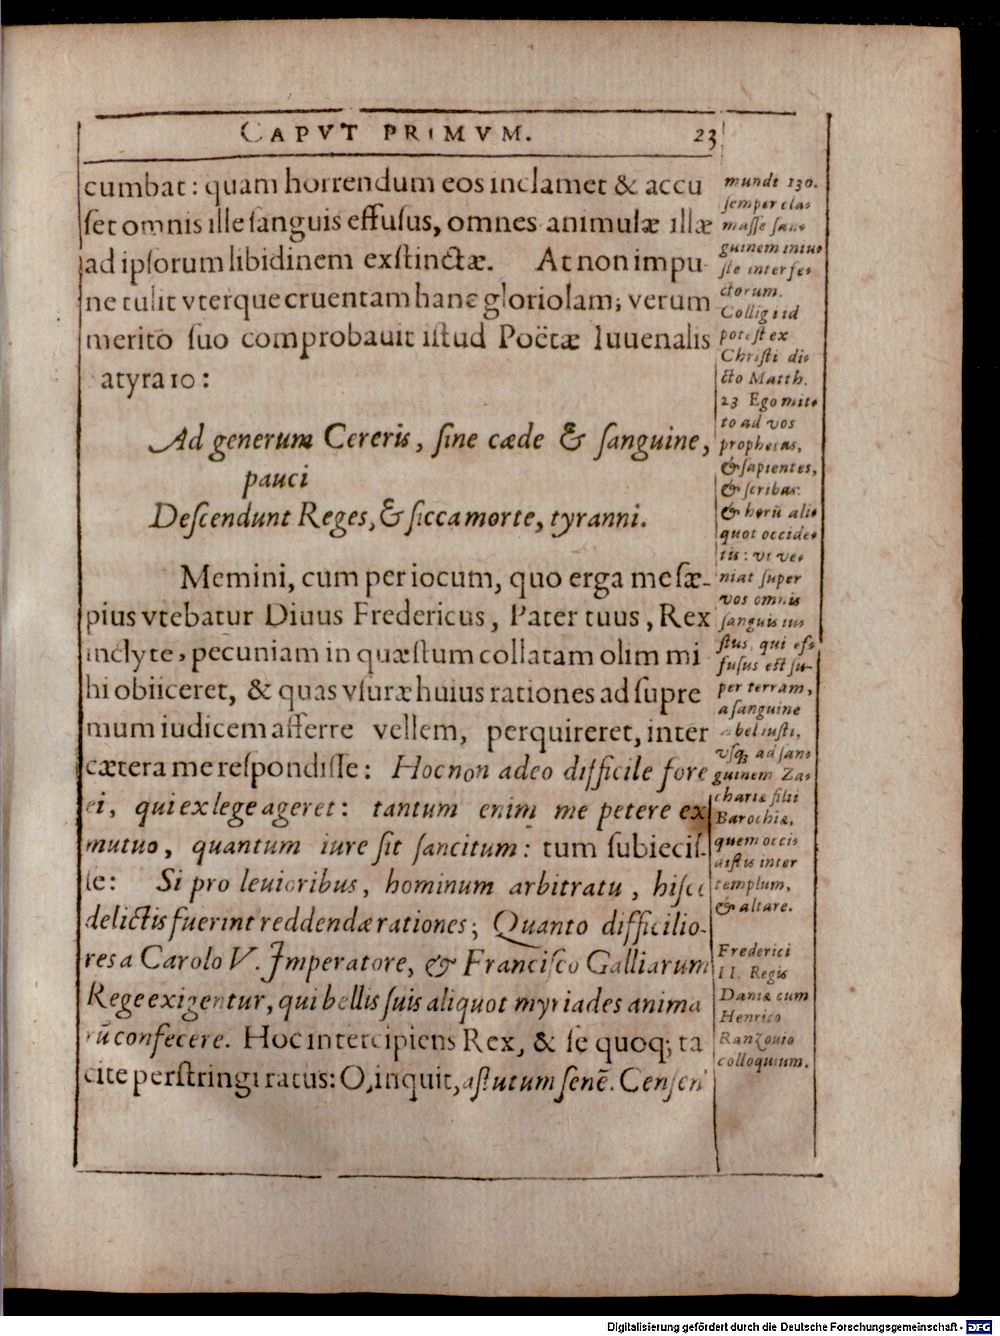 CAPVT PRIMVM. 23
cumbat: quam horrendum eos inclamet & accu
ſet omnis ille ſanguis effuſus, omnes animulæ illæ
ad ipſorum libidinem exſtinctæ. At non impu
ne tulit vterque cruentam hanc gloriolam; verum
merito ſuo comprobauit iſtud Poëtæ Iuuenalis
atyra 10:
Ad generum Cereris, ſine cæde & ſanguine,
pauci
Deſcendunt Reges, & ſicca morte, tyranni.
Memini, cum per iocum, quo erga me ſæ-
pius vtebatur Diuus Fredericus, Pater tuus, Rex
inclyte, pecuniam in quæſtum collatam olim mi
hi obiiceret, & quas vſuræ huius rationes ad ſupre
mum iudicem afferre vellem, perquireret, inter
cætera me reſpondiſſe: Hoc non adeo difficile fore
ei, qui ex lege ageret: tantum enim me petere ex
mutuo, quantum iure ſit ſancitum: tum ſubieciſ-
ſe: Si pro leuioribus, hominum arbitratu, hiſce
delictis fuerint reddendæ rationes; Quanto difficilio-
res a Carolo V. Imperatore, & Franciſco Galliarum
Rege exigentur, qui bellis ſuis aliquot myriades anima
rū confecere. Hoc intercipiens Rex, & ſe quoq; ta
cite perſtringi ratus: O, inquit, aſtutum ſenē. Cenſen
mundi 130.
ſemper cla-
maſſe ſan-
guinem iniu-
ſte interfe-
ctorum.
Colligi id
poteſt ex
Chriſti di-
cto Matth.
23 Ego mit-
to ad vos
prophetas,
& ſapientes,
& ſcribas:
& horū ali-
quot occide-
tis: vt ve-
niat ſuper
vos omnis
ſanguis iu-
ſtus, qui ef-
fuſus eſt ſu-
per terram,
a ſanguine
Abel iuſti,
vſq; ad ſan-
guinem Za-
chariæ filii
Barochiæ,
quem occi-
diſtis inter
templum,
& altare.
Frederici
II. Regis
Daniæ cum
Henrico
Ranzouio
colloquium.
Digitalisierung gefördert durch die Deutsche Forschungsgemeinschaft - DFG